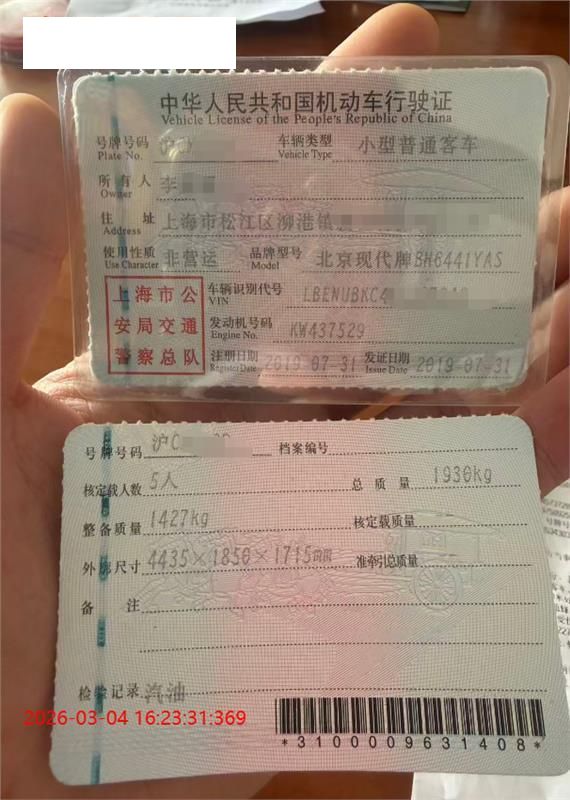 中华人民共和国机动车行驶证
Vehicle License of the People's Republic of China
号牌号码 沪 车辆类型 小型普通客车
Plate No. Vehicle Type
所有人 李
Owner
住址 上海市松江区泖港镇
Address
使用性质 非营运 品牌型号 北京现代牌BH6441YAS
Use Character Model
上海市公
安局交通
警察总队
车辆识别代号 LBENUBKC4
VIN
发动机号码 KW437529
Engine No.
注册日期 2019-07-31 发证日期 2019-07-31
Register Date Issue Date
号牌号码 沪C 档案编号
核定载人数 5人 总质量 1930kg
整备质量 1427kg 核定载质量
外廓尺寸 4435×1850×1715mm 准牵引总质量
备注
检验记录 汽油
2026-03-04 16:23:31:369
*3100009631408*